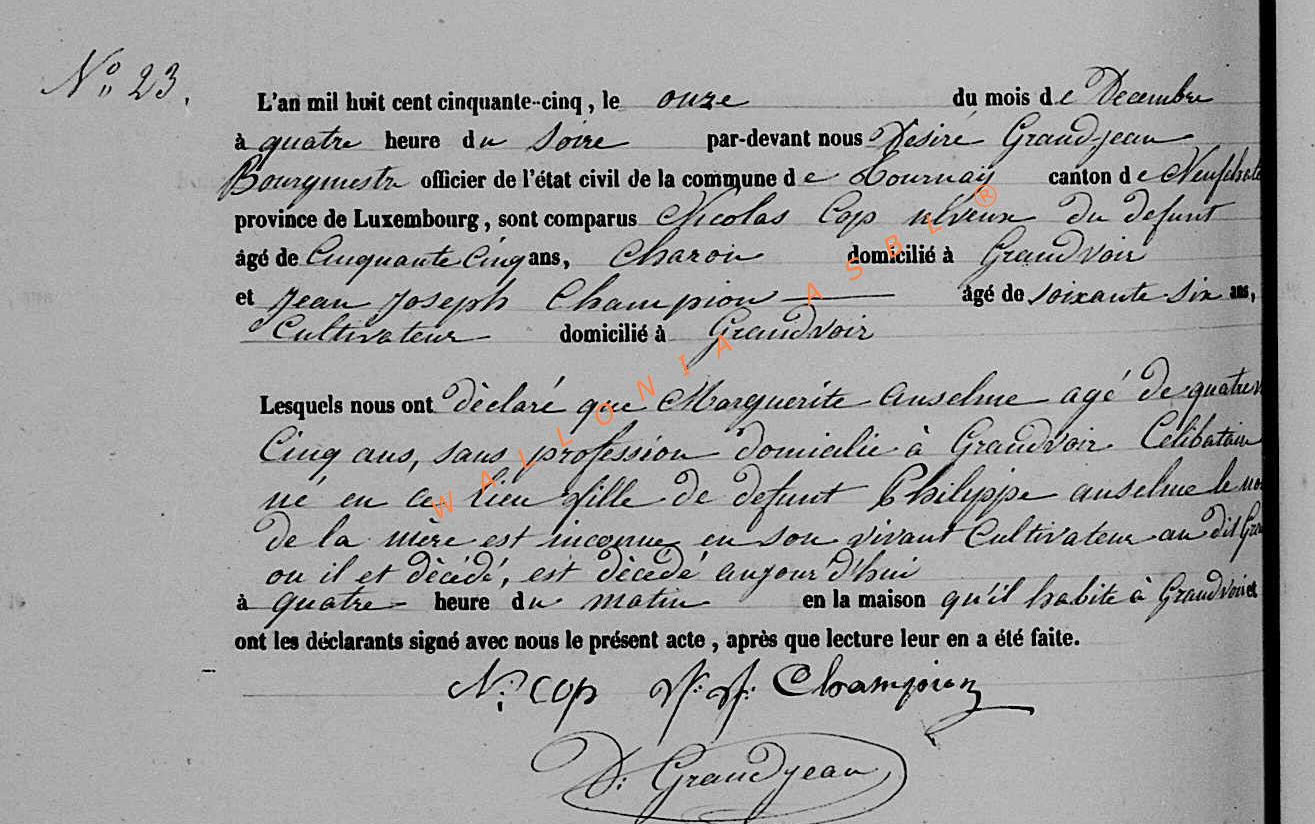 N° 23.
L'an mil huit cent cinquante-cinq, le onze du mois de Decembre
à quatre heure du soire par-devant nous Désiré Grandjean
Bourgmestr officier de l'état civil de la commune de Tournay canton de Neufchate
province de Luxembourg, sont comparus Nicolas Cop neveux du defunt
âgé de Cinquante Cinq ans, Charon domicilié à Grandvoir
et Jean Joseph Champion âgé de soixante six ans,
Cultivateur domicilié à Grandvoir
Lesquels nous ont dèclaré que Marguerite Anselme agé de quatre
Cinq ans, sans profession domicilie à Grandvoir Celibatair
né en ce lieu fille de defunt Philippe anselme le no
de la mère est inconnue en son vivant Cultivateur au dit Gra
ou il et dècédé, est dècedé aujourd'hui
à quatre heure du matin en la maison qu'il habite à Grandvoir et
ont les déclarants signé avec nous le présent acte, après que lecture leur en a été faite.
N: Cop J: J: Champion
D: Grandjean
WALLONIA ASBL ®